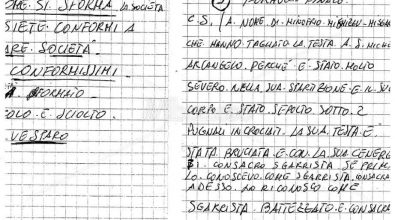 CHE SI SFORMA LA SOCIETÀ
SIETE CONFORMI A
ARE SOCIETÀ
CONFORMISSIMI
FORMATO
OLO È SCIOLTO
VESPARO
FORMULA FINALE
C.S. / A NOME DI MINOFRIO MISGARRO
CHE HANNO TAGLIATO LA TESTA A S. MICHE
ARCANGELO PERCHÉ È STATO MOLTO
SEVERO NELLA SUA SPARTIZIONE E IL SUO
CORPO È STATO SEPOLTO SOTTO 2
PUGNALI INCROCIATI LA SUA TESTA È
STATA BRUCIATA E CON LA SUA CENERE
SI CONSACRO SGARRISTA SE PRIMA
LO CONOSCEVO COME SGARRISTA CONSACRA
ADESSO LO RICONOSCO COME
SGARRISTA BATTEZZATO E CONSACRA